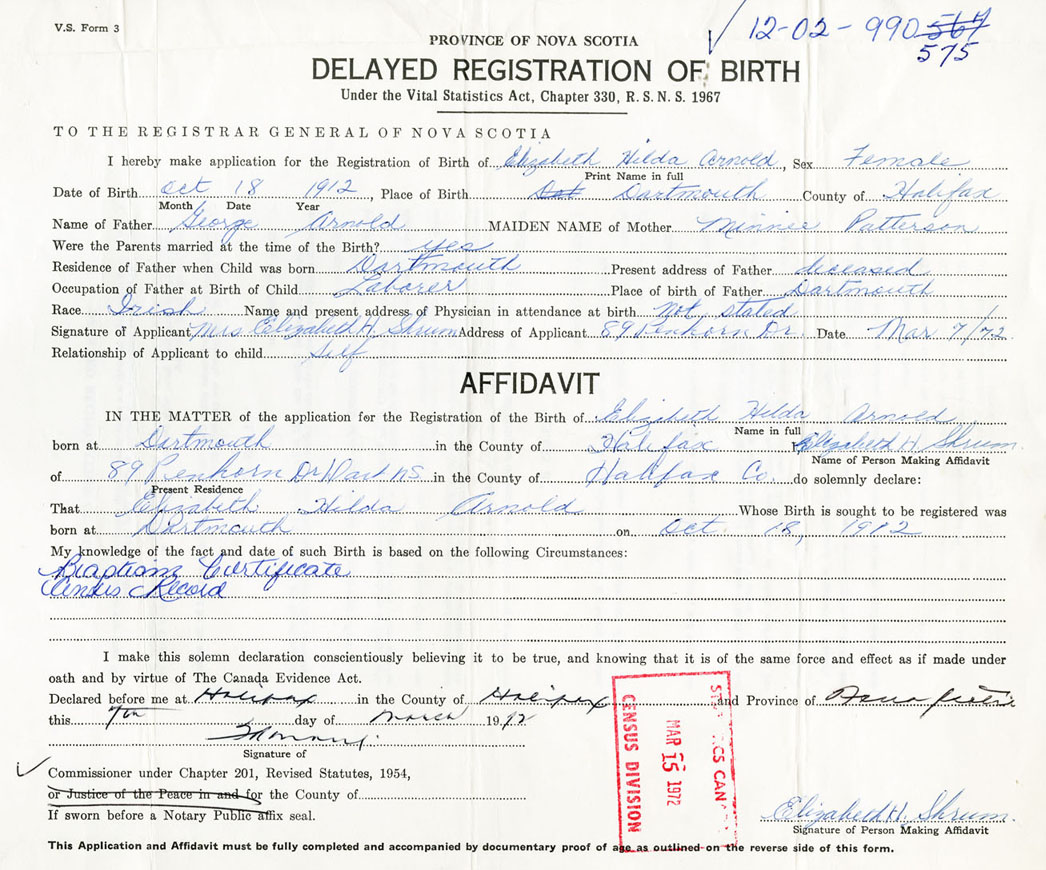 V.S. Form 3
12-02-990 567
575
PROVINCE OF NOVA SCOTIA
DELAYED REGISTRATION OF BIRTH
Under the Vital Statistics Act, Chapter 330, R. S. N. S. 1967
TO THE REGISTRAR GENERAL OF NOVA SCOTIA
I hereby make application for the Registration of Birth of Elizabeth Hilda Arnold, Sex Female
Print Name in full
Date of Birth Oct 18 1912, Place of Birth Dat Dartmouth County of Halifax
Month Date Year
Name of Father George Arnold MAIDEN NAME of Mother Minnie Patterson
Were the Parents married at the time of the Birth? yes
Residence of Father when Child was born Dartmouth Present address of Father deceased
Occupation of Father at Birth of Child Laborer Place of birth of Father Dartmouth
Race Irish Name and present address of Physician in attendance at birth Not stated
Signature of Applicant Mrs Elizabeth H. Shrum Address of Applicant 89 Penhorn Dr. Date Mar 7/72
Relationship of Applicant to child Self
AFFIDAVIT
IN THE MATTER of the application for the Registration of the Birth of Elizabeth Hilda Arnold
Name in full
born at Dartmouth in the County of Halifax Elizabeth H. Shrum
Name of Person Making Affidavit
of 89 Penhorn Dr Dart N.S. in the County of Halifax Co. do solemnly declare:
Present Residence
That Elizabeth Hilda Arnold Whose Birth is sought to be registered was
born at Dartmouth on Oct. 18, 1912
My knowledge of the fact and date of such Birth is based on the following Circumstances:
Baptism Certificate
Census Record
I make this solemn declaration conscientiously believing it to be true, and knowing that it is of the same force and effect as if made under
oath and by virtue of The Canada Evidence Act.
Declared before me at Halifax in the County of Halifax and Province of Nova Scotia
this 7th day of March 1972
Signature of
Commissioner under Chapter 201, Revised Statutes, 1954,
or Justice of the Peace in and for the County of
If sworn before a Notary Public affix seal.
CENSUS DIVISION
MAR 15 1972
Elizabeth H. Shrum
Signature of Person Making Affidavit
This Application and Affidavit must be fully completed and accompanied by documentary proof of age as outlined on the reverse side of this form.